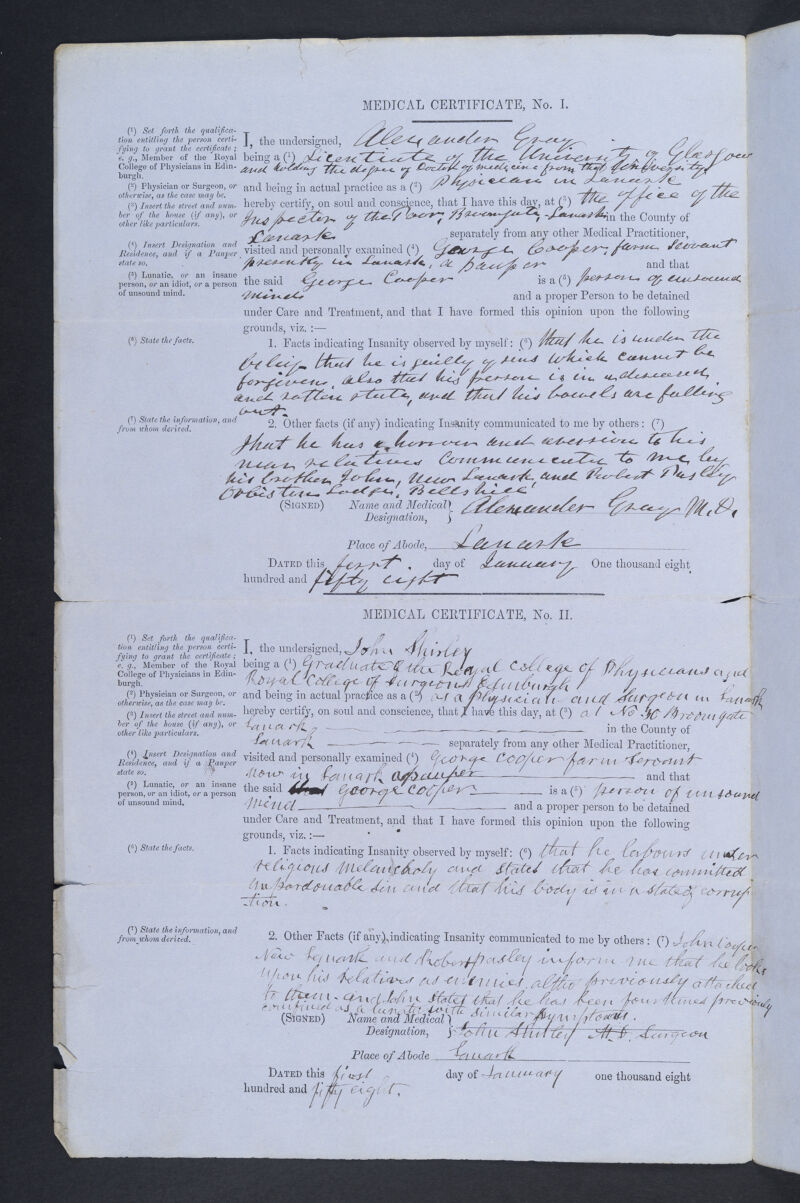 MEDICAL CERTIFICATE, No. I.
(1) Set forth the qualifica-
tion entitling the person certi-
fying to grant the certificate;
e. g., Member of the Royal
College of Physicians in Edin-
burgh.
(2) Physician or Surgeon, or
otherwise, as the case may be.
(3) Insert the street and num-
ber of the house (if any), or
other like particulars.
(4) Insert Designation and
Residence, and if a Pauper
state so.
(5) Lunatic, or an insane
person, or an idiot, or a person
of unsound mind.
I, the undersigned, Alexander Gray
being a (1) Licentiate of the University of Glasgow
and holding the degree of Doctor of medicine from that University
and being in actual practice as a (2) Physician in Lanark
hereby certify, on soul and conscience, that I have this day, at (3) the office of the
Inspector of the Poor, Broomgate, Lanark in the County of
Lanark separately from any other Medical Practitioner,
visited and personally examined (4) George Cooper, farm servant
presently in Lanark, a pauper and that
the said George Cooper is a (5) person of unsound
mind and a proper Person to be detained
under Care and Treatment, and that I have formed this opinion upon the following
grounds, viz.:—
(6) State the facts.
1. Facts indicating Insanity observed by myself: (6) that he is under the
belief that he is guilty of sins which cannot be
forgiven, also that his person is in a diseased
and rotten state, and that his bowels are falling
out.
(7) State the information, and
from whom derived.
2. Other facts (if any) indicating Insanity communicated to me by others: (7)
that he has a horror and aversion to his
near relatives communicated to me by
his brother John, New Lanark, and Robert Pasley
Orbiston Lodge, Bellshill
(SIGNED) Name and Medical Designation, Alexander Gray M.D.
Place of Abode, Lanark
DATED this first day of January One thousand eight
hundred and fifty eight
MEDICAL CERTIFICATE, No. II.
(1) Set forth the qualifica-
tion entitling the person certi-
fying to grant the certificate;
e. g., Member of the Royal
College of Physicians in Edin-
burgh.
(2) Physician or Surgeon, or
otherwise, as the case may be.
(3) Insert the street and num-
ber of the house (if any), or
other like particulars.
(4) Insert Designation and
Residence, and if a Pauper
state so.
(5) Lunatic, or an insane
person, or an idiot, or a person
of unsound mind.
I, the undersigned, John Shirley
being a (1) Graduate of the Royal College of Physicians and
Royal College of Surgeons Edinburgh
and being in actual practice as a (2) as a physician and surgeon in Lanark
hereby certify, on soul and conscience, that I have this day, at (3) at No 30 Broomgate
Lanark in the County of
Lanark separately from any other Medical Practitioner,
visited and personally examined (4) George Cooper farm servant
now in Lanark a pauper and that
the said George Cooper is a (5) person of unsound
mind and a proper person to be detained
under Care and Treatment, and that I have formed this opinion upon the following
grounds, viz.:—
(6) State the facts.
1. Facts indicating Insanity observed by myself: (6) that he labours under
religious melancholy and states that he has committed
unpardonable sin and that his body is in a state of corrup
tion.
(7) State the information, and
from whom derived.
2. Other Facts (if any), indicating Insanity communicated to me by others: (7) John Cooper
New Lanark and Robert Pasley inform me that he looks
upon his relatives as enemies, altho previously attached
to them. and John states that he has been four times previously
confined as a lunatic with similar symptoms.
(SIGNED) Name and Medical Designation, John Shirley M.D. Surgeon
Place of Abode Lanark
DATED this first day of January one thousand eight
hundred and fifty eight.